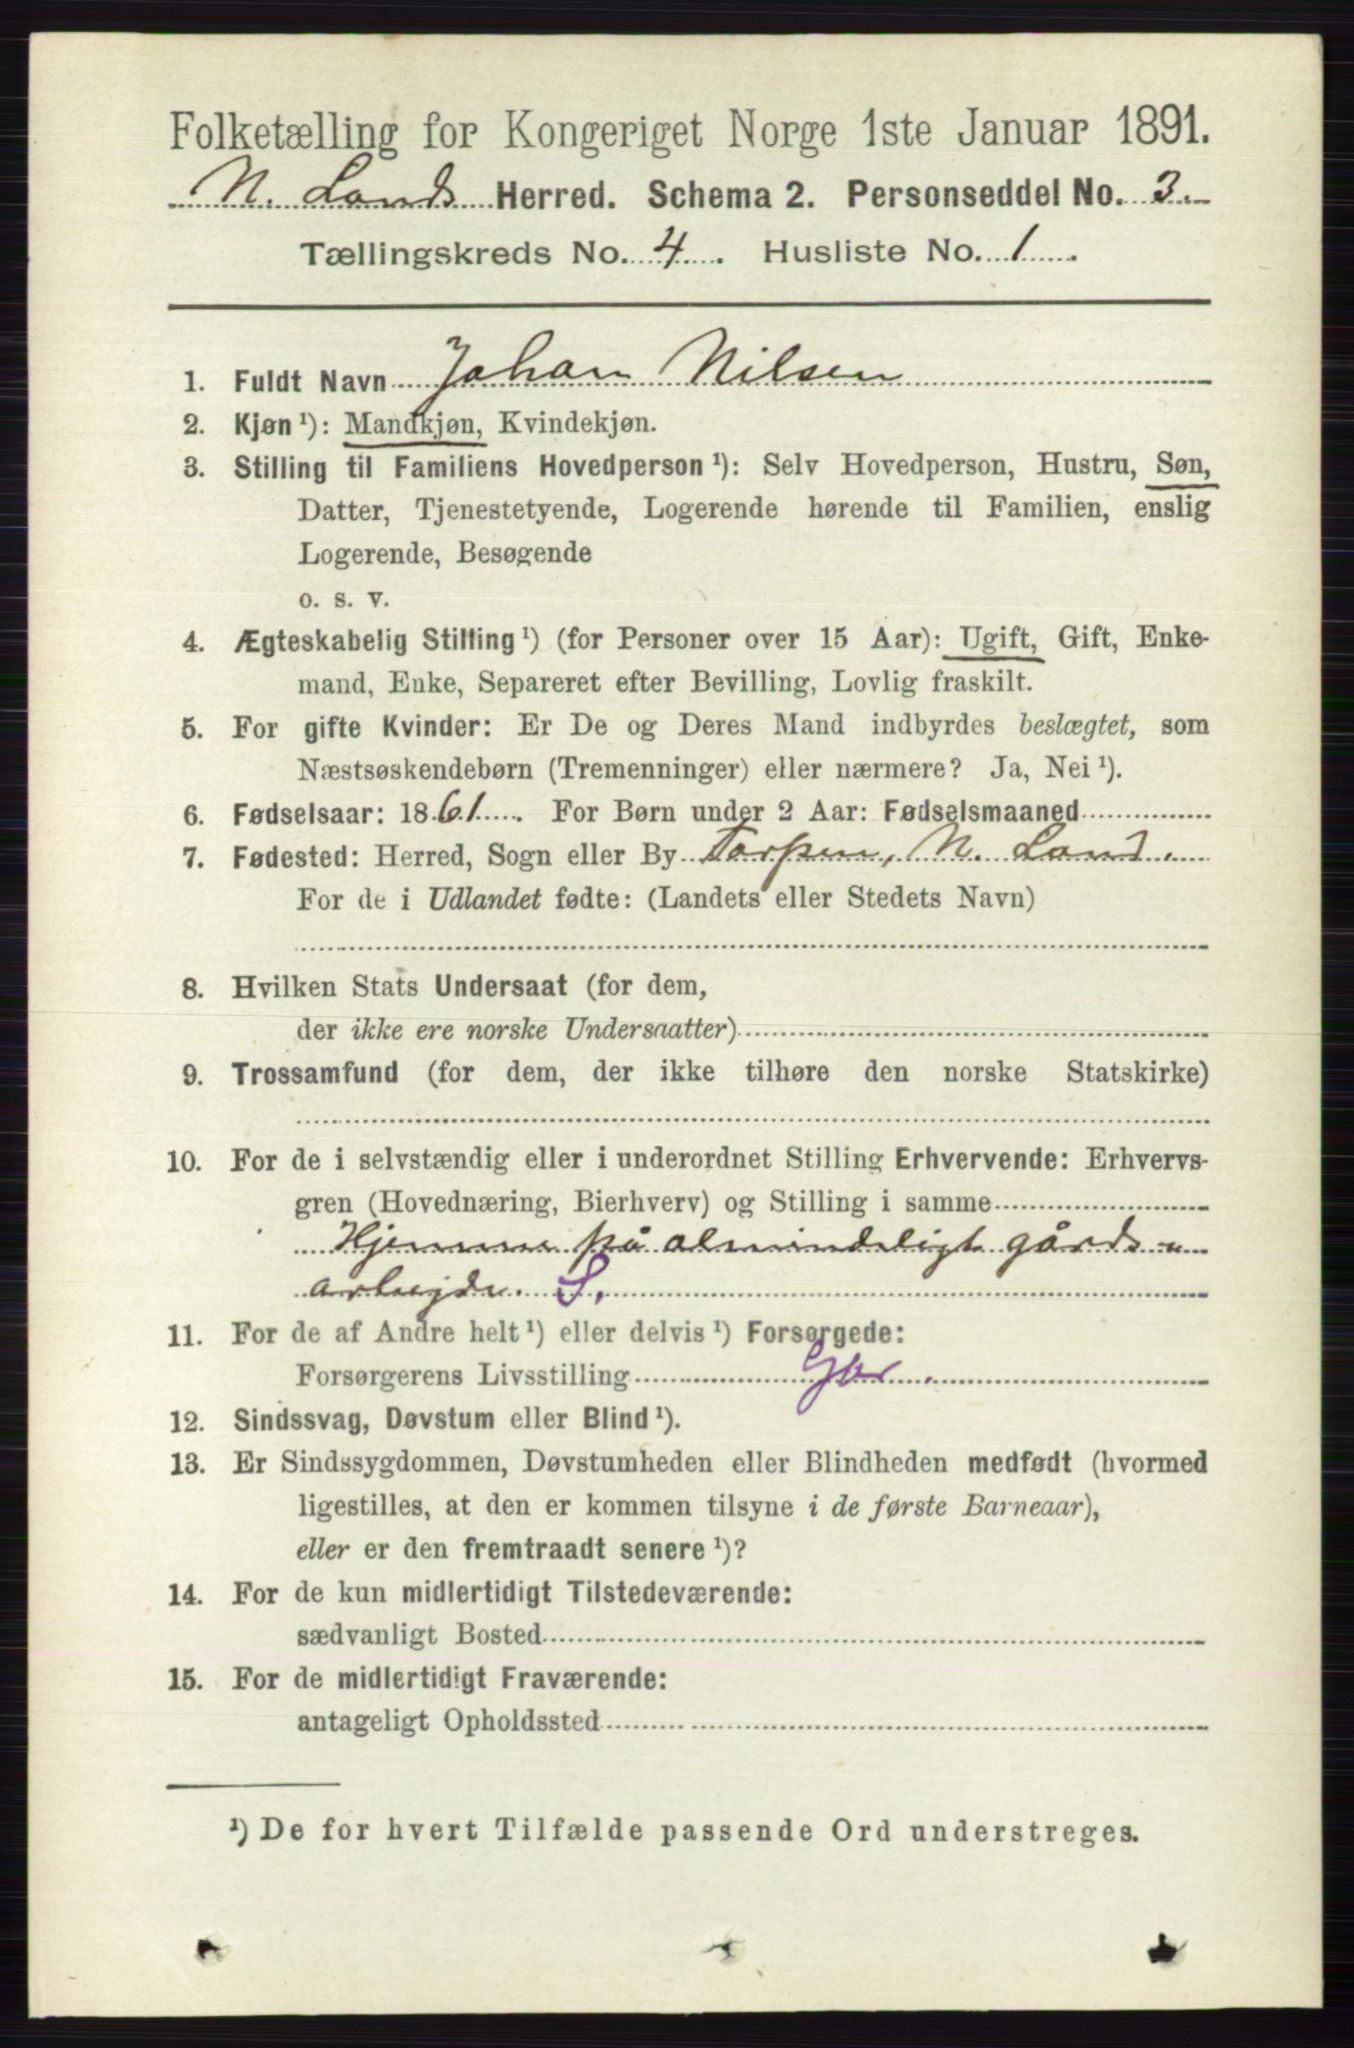 Folketælling for Kongeriget Norge 1ste Januar 1891.
N. Lands Herred. Schema 2. Personseddel No. 3.
Tællingskreds No. 4. Husliste No. 1.
1. Fuldt Navn Johan Nilsen
2. Kjøn ¹): Mandkjøn, Kvindekjøn.
3. Stilling til Familiens Hovedperson ¹): Selv Hovedperson, Hustru, Søn,
Datter, Tjenestetyende, Logerende hørende til Familien, enslig
Logerende, Besøgende
o. s. v.
4. Ægteskabelig Stilling ¹) (for Personer over 15 Aar): Ugift, Gift, Enke-
mand, Enke, Separeret efter Bevilling, Lovlig fraskilt.
5. For gifte Kvinder: Er De og Deres Mand indbyrdes beslægtet, som
Næstsøskendebørn (Tremenninger) eller nærmere? Ja, Nei ¹).
6. Fødselsaar: 1861. For Børn under 2 Aar: Fødselsmaaned
7. Fødested: Herred, Sogn eller By Torpen, N. Land.
For de i Udlandet fødte: (Landets eller Stedets Navn)
8. Hvilken Stats Undersaat (for dem,
der ikke ere norske Undersaatter)
9. Trossamfund (for dem, der ikke tilhøre den norske Statskirke)
10. For de i selvstændig eller i underordnet Stilling Erhvervende: Erhvervs-
gren (Hovednæring, Bierhverv) og Stilling i samme
Hjemme på almindeligt gårds-
arbejde. S.
11. For de af Andre helt ¹) eller delvis ¹) Forsørgede:
Forsørgerens Livsstilling Gbr.
12. Sindssvag, Døvstum eller Blind ¹).
13. Er Sindssygdommen, Døvstumheden eller Blindheden medfødt (hvormed
ligestilles, at den er kommen tilsyne i de første Barneaar),
eller er den fremtraadt senere ¹)?
14. For de kun midlertidigt Tilstedeværende:
sædvanligt Bosted
15. For de midlertidigt Fraværende:
antageligt Opholdssted
¹) De for hvert Tilfælde passende Ord understreges.